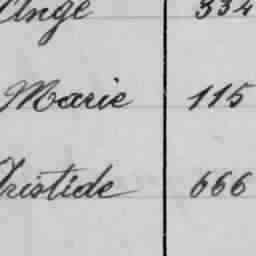 Ange 334
Marie 115
Aristide 666